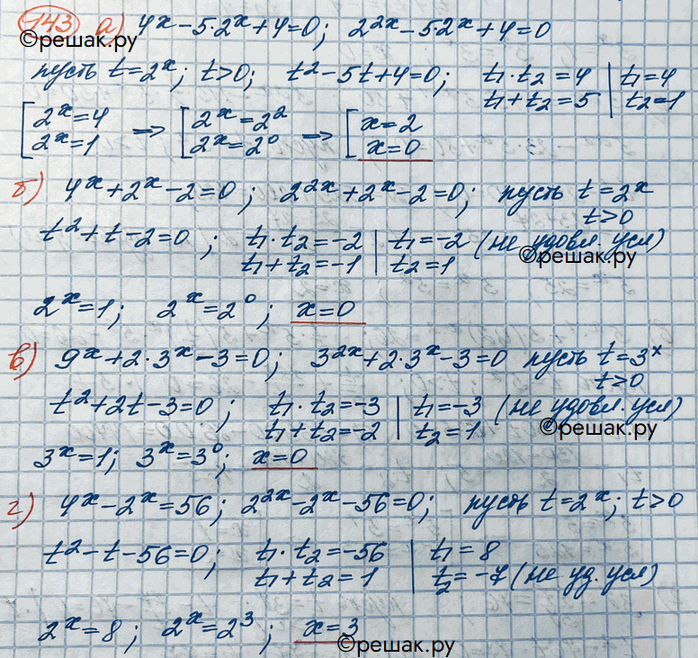 743 а) 4ˣ-5·2ˣ+4=0; 2²ˣ-5·2ˣ+4=0
©решак.ру
пусть t=2ˣ; t>0; t²-5t+4=0; t₁·t₂=4 | t₁=4
t₁+t₂=5 | t₂=1
[2ˣ=4 => [2ˣ=2² => [x=2
2ˣ=1 2ˣ=2⁰ x=0
б) 4ˣ+2ˣ-2=0; 2²ˣ+2ˣ-2=0; пусть t=2ˣ
t>0
t²+t-2=0; t₁·t₂=-2 | t₁=-2 (не удовл. усл)
t₁+t₂=-1 | t₂=1
©решак.ру
2ˣ=1; 2ˣ=2⁰; x=0
в) 9ˣ+2·3ˣ-3=0; 3²ˣ+2·3ˣ-3=0 пусть t=3ˣ
t>0
t²+2t-3=0; t₁·t₂=-3 | t₁=-3 (не удовл. усл)
t₁+t₂=-2 | t₂=1
©решак.ру
3ˣ=1; 3ˣ=3⁰; x=0
г) 4ˣ-2ˣ=56; 2²ˣ-2ˣ-56=0; пусть t=2ˣ; t>0
t²-t-56=0; t₁·t₂=-56 | t₁=8
t₁+t₂=1 | t₂=-7 (не уд. усл)
2ˣ=8; 2ˣ=2³; x=3
©решак.ру